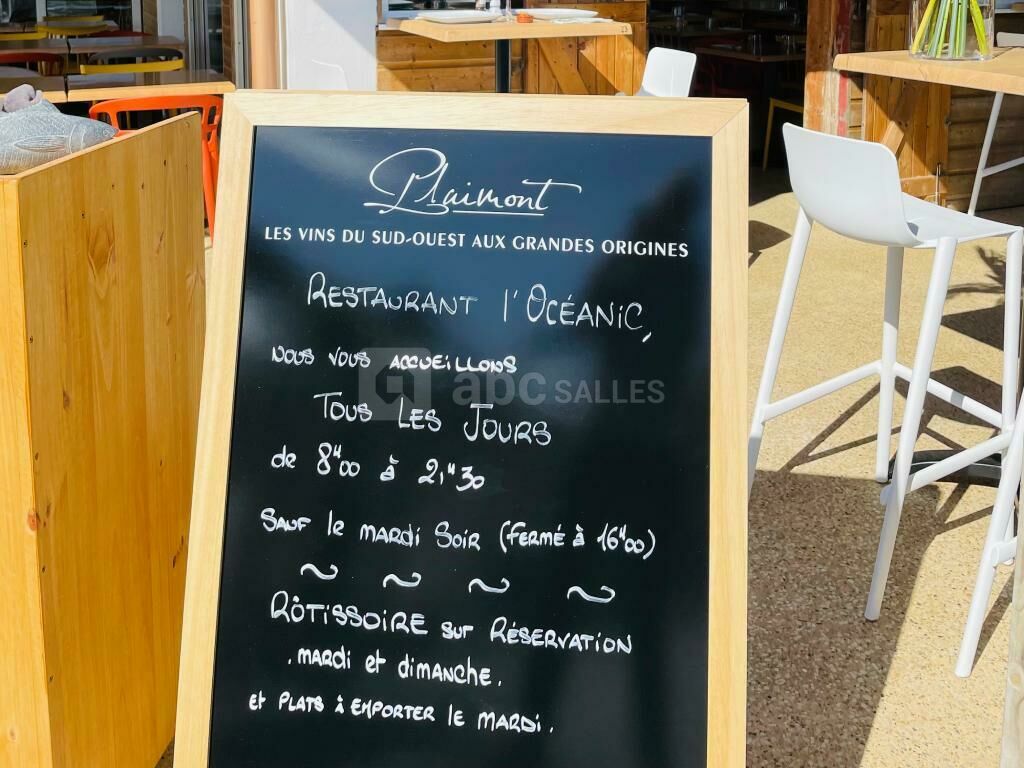 23
Plaimont
LES VINS DU SUD-OUEST AUX GRANDES ORIGINES
RESTAURANT l'OCÉANIC,
NOUS VOUS ACCUEILLONS
abc SALLES
TOUS LES JOURS
de 8H00 à 21H30
SAUF le MARDI SOIR (FERMÉ à 16H00)
RÔTISSOIRE sur RÉSERVATION
. MARDI et diMANCHE .
et PLATS à EMPORTER le MARDI .